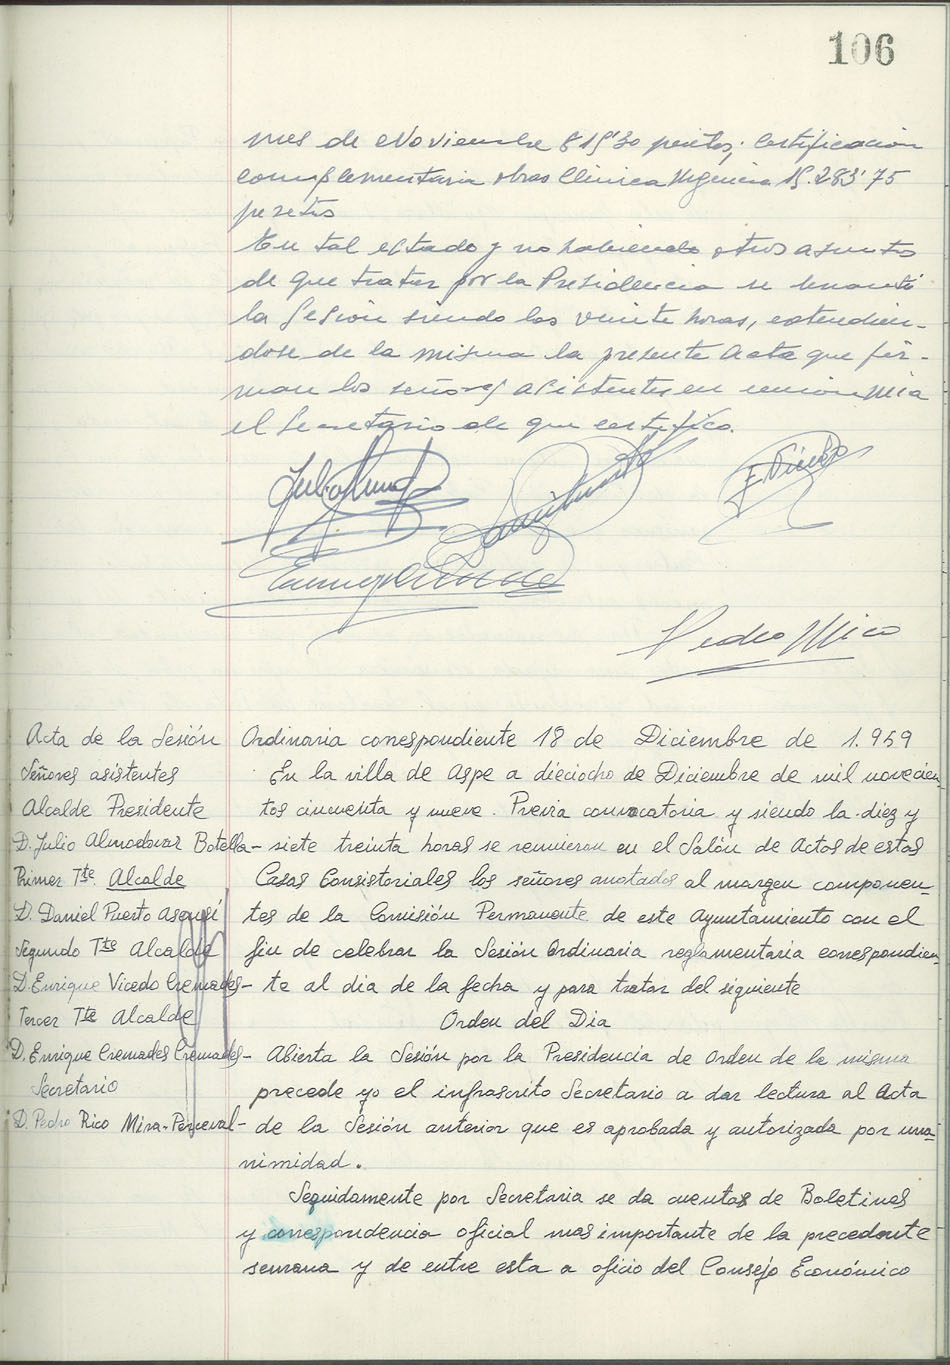 106
mes de Noviembre 819'30 pesetas; Certificación
complementaria obras Clinica Urgencia 19.283'75
pesetas
En tal estado y no habiendo otros asuntos
de que tratar por la Presidencia se levantó
la Sesión siendo las veinte horas, extendien-
dose de la misma la presente Acta que fir-
man los señores asistentes en union mia
el Secretario de que certifico.
E. Vicedo
Pedro Rico
Acta de la Sesión Ordinaria correspondiente 18 de Diciembre de 1.959
Señores asistentes
Alcalde Presidente
D. Julio Almodovar Botella-
Primer Tte. Alcalde
D. Daniel Puerto Asensi
Segundo Tte Alcalde
D. Enrique Vicedo Cremades-
Tercer Tte Alcalde
D. Enrique Cremades Cremades-
Secretario
D. Pedro Rico Mira-Perceval-
En la villa de Aspe a dieciocho de Diciembre de mil novecien-
tos cincuenta y nueve. Previa convocatoria y siendo la diez y
siete treinta horas se reunieron en el Salón de Actos de estas
Casas Consistoriales los señores anotados al margen componen-
tes de la Comisión Permanente de este Ayuntamiento con el
fin de celebrar la Sesión Ordinaria reglamentaria correspondien-
te al dia de la fecha y para tratar del siguiente
Orden del Dia
Abierta la Sesión por la Presidencia de orden de la misma
precede yo el infrascrito Secretario a dar lectura al Acta
de la Sesión anterior que es aprobada y autorizada por una-
nimidad.
Seguidamente por Secretaria se da cuentas de Boletines
y correspondencia oficial mas importante de la precedente
semana y de entre esta a oficio del Consejo Económico